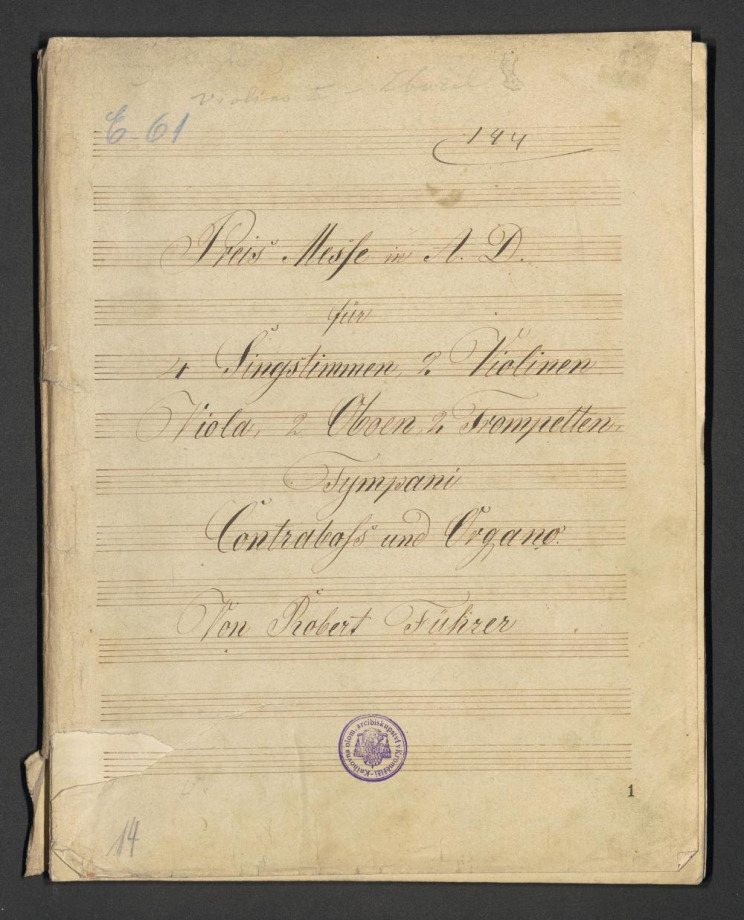 Violino I
E. 61
144
Preis Messe in A. D.
für
4 Singstimmen, 2 Violinen
Viola, 2 Oboen, 2 Trompetten,
Tympani
Contrabaſs und Organo.
Von Robert Führer
Knihovna olom. arcibiskupství v Kroměříži
1
14